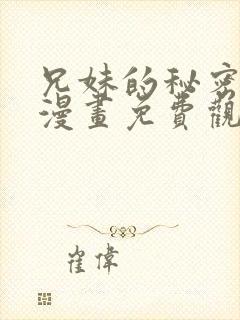 兄妹的秘密
漫畫免費觀
崔偉